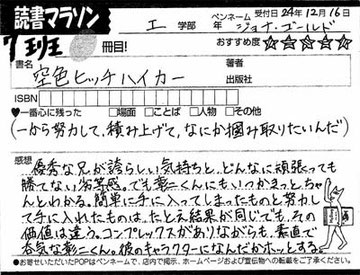 読書マラソン
エ 学部 年
ペンネーム 受付日24年12月16日
ジョナ・ゴールド
7班 冊目!
おすすめ度☆☆☆☆☆
書名
空色ヒッチハイカー
著者
出版社
ISBN
♥一番心に残った □場面 □ことば □人物 □その他
(一から努力して、積み上げて、なにか掴み取りたいんだ)
感想
優秀な兄が誇らしい気持ちと、どんなに頑張っても
勝てない劣等感。でも彰二くんにもいつかきっとちゃ
んとわかる。簡単に手に入ってしまったものと努力し
て手に入れたものは、たとえ結果が同じでも、その
価値は違う。コンプレックスがありながらも、素直で
呑気な彰二くん。彼のキャラクターになんだかホッとする。
●お寄せいただいたPOPはペンネームで、店内で掲示、ホームページおよび宣伝物への転載をご了承ください。